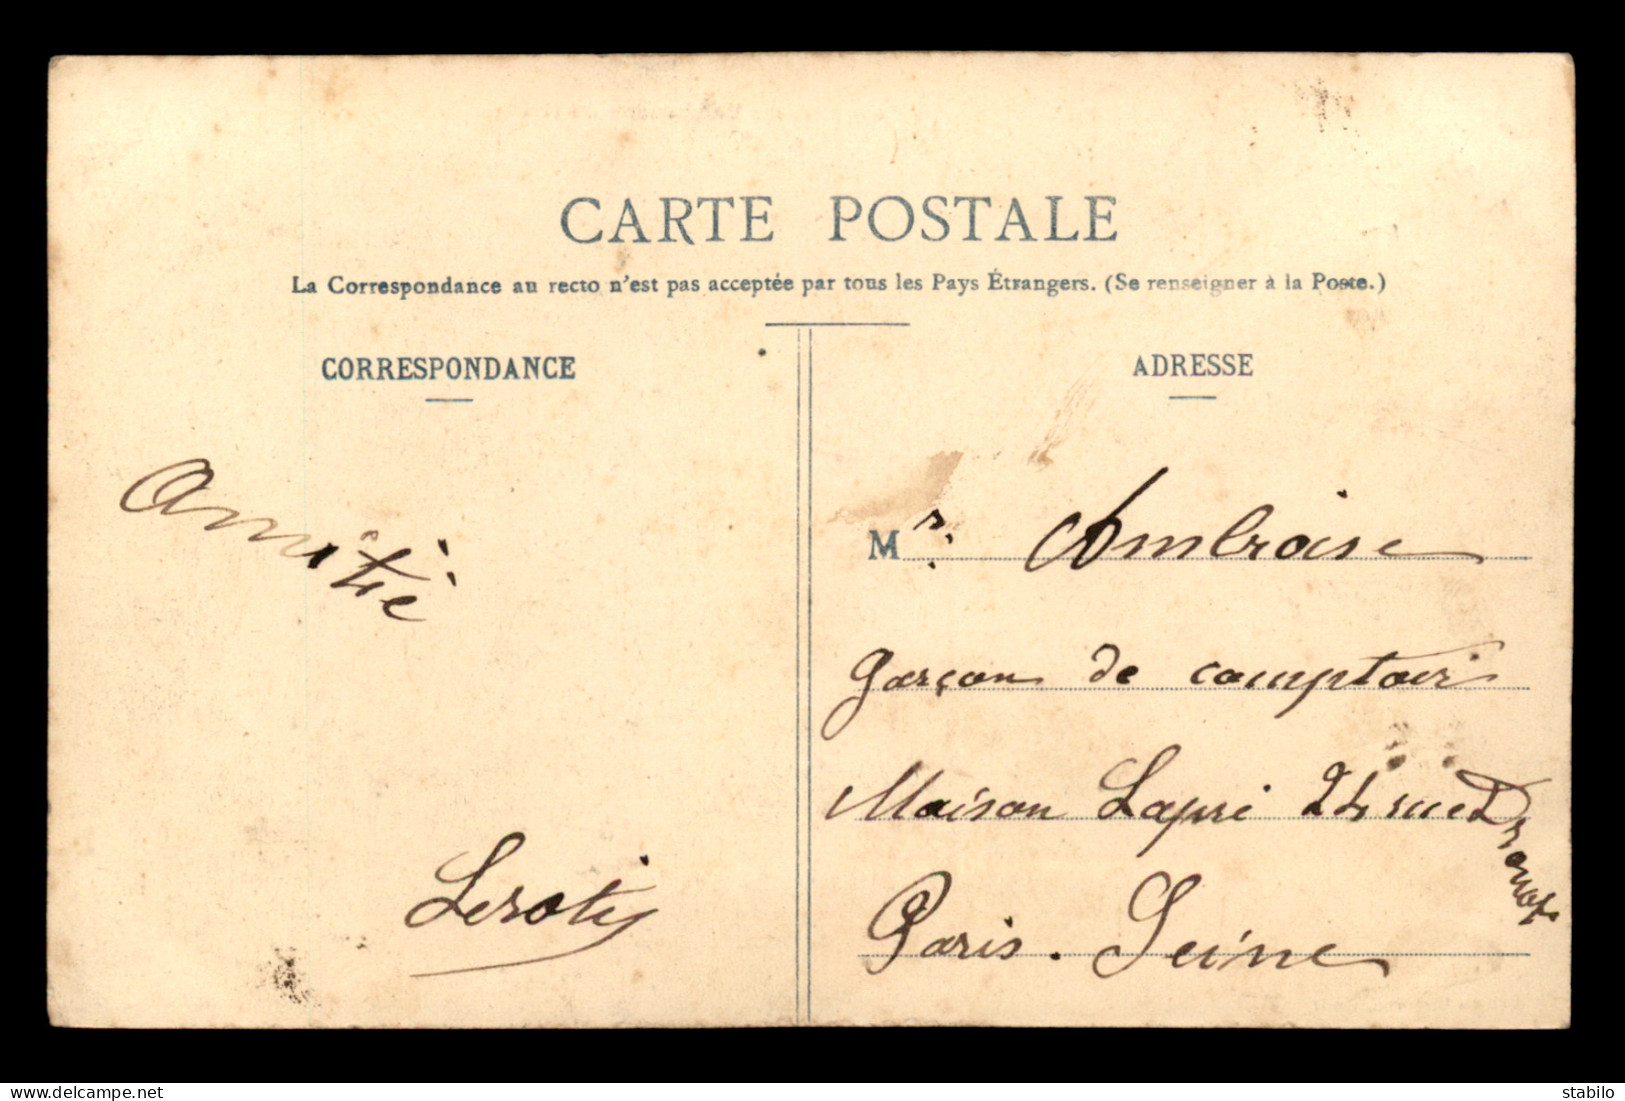 CARTE POSTALE
La Correspondance au recto n'est pas acceptée par tous les Pays Étrangers. (Se renseigner à la Poste.)
CORRESPONDANCE
Amitié
ADRESSE
Mr. Ambroise
garçon de comptoir
Maison Lapré 24 rue Drouot
Paris. Seine
delcampe.net
stabilo